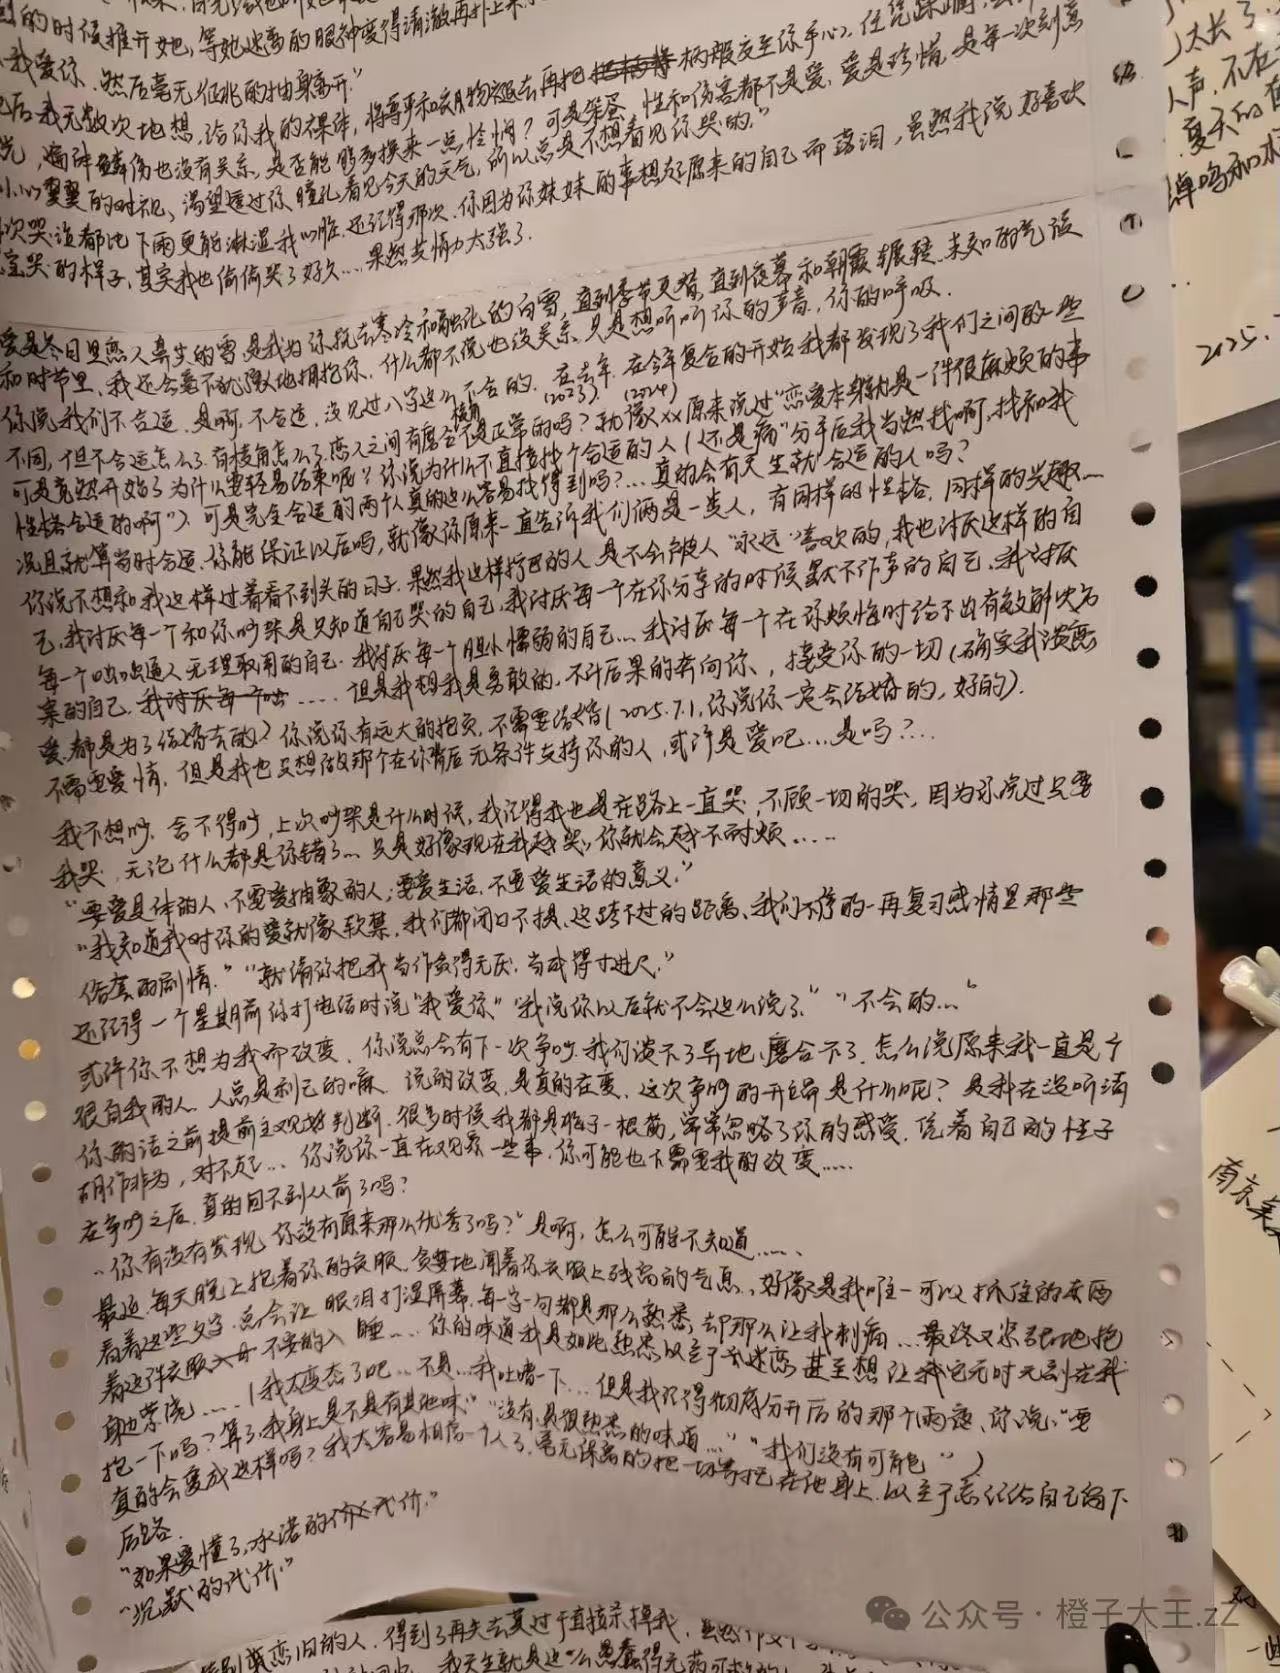 的时候推开她,等她迷离的眼神变得清澈再扑上来
我爱你.然后毫无征兆的抽身离开."
后我无数次地想,给你我的裸体,将尊严和衣物褪去再把 柄般交至你手心.任凭
,遍体鳞伤也没有关系,是否能够多换来一点怜悯?可是笨蛋,性和伤害都不是爱.爱是珍惜.是每一次刻意
小心翼翼的对视、渴望透过你瞳孔看见今天的天气,所以总是不想看见你哭的."
次哭泣都比下雨更能淋湿我心脏.还记得那次.你因为你妹妹的事想起原来的自己而落泪,虽然我说好喜欢
宝哭的样子,其实我也偷偷哭了好久....果然共情力太强了.
爱是冬日里恋人鼻尖的雪.是我为你抚去寒冷和融化的白雪,直到季节更替,直到夜幕和朝霞辗转.未知的气该
和时节里.我还会毫不犹豫地拥抱你.什么都不说也没关系,只是想听听你的声音.你的呼吸.
你说我们不合适.是啊,不合适,没见过八字这么不合的.在去年(2023).在今年(2024)复合的开始我都发现了我们之间的一些
不同,但不合适怎么了.有棱角怎么了.恋人之间有磨合不是正常的吗?就像xx原来说过"恋爱本身就是一件很麻烦的事
可是竟然开始了为什么要轻易结束呢"?你说为什么不直接找个合适的人(还是病"分手后我当然找啊,找和我
性格合适的啊").可是完全合适的两个人真的这么容易找得到吗?...真的会有天生就合适的人吗?
况且就算当时合适.你能保证以后吗,就像你原来一直告诉我们俩是一类人,有同样的性格.同样的兴趣...
你说不想和我这样过着看不到头的日子.果然我这样拧巴的人是不会被人"永远"喜欢的,我也讨厌这样的自
己,我讨厌每一个和你吵架是只知道自己哭的自己,我讨厌每一个在你分享的时候默不作声的自己.我讨厌
每一个咄咄逼人无理取闹的自己.我讨厌每一个胆小懦弱的自己...我讨厌每一个在你烦恼时给不出有效解决方
案的自己.我讨厌每个咄.....但是我想我是勇敢的,不计后果的奔向你,接受你的一切(确实我谈恋
爱.都是为了结婚去的.)你说你有远大的抱负,不需要结婚(2025.7.1,你说你一定会结婚的,好的).
不需要爱情.但是我也只想做那个在你背后无条件支持你的人,或许是爱吧....是吗?...
我不想吵.舍不得吵,上次吵架是什么时候,我记得我也是在路上一直哭,不顾一切的哭,因为你说过只要
我哭,无论什么都是你错了...只是好像现在我越哭,你就会越不耐烦......
"要爱具体的人.不需要爱抽象的人;要爱生活.不要爱生活的意义."
"我知道我对你的爱就像软禁,我们都闭口不提.这跨不过的距离、我们不停的一再复习感情里那些
俗套的剧情.""就请你把我当作贪得无厌.当成得寸进尺."
还记得一个星期前你打电话时说"我爱你""我说你以后就不会这么说了""不会的..."
或许你不想为我而改变.你说总会有下一次争吵.我们谈不了异地,磨合不了.怎么说原来我一直是个
很自我的人.人总是利己的嘛.说的改变.是真的在变.这次争吵的开端是什么呢?是我在没听清
你的话之前提前主观的判断.很多时候我都是脑子一根筋,常常忽略了你的感受.凭着自己的性子
胡作非为,对不起...你说你一直在观察一些事.你可能也不需要我的改变.....
在争吵之后.真的回不到从前了吗?
"你有没有发现,你没有原来那么优秀了吗?"是啊,怎么可能不知道......
最近.每天晚上抱着你的衣服.贪婪地闻着你衣服上残留的气息.好像是我唯一可以抓住的东西
看着这些文字.总会让眼泪打湿屏幕.每一字一句都是那么熟悉,却那么让我刺痛...最终又紧紧地抱
着这件衣服 不安的入睡....你的味道我是如此熟悉以至于我迷恋.甚至想让我它无时无刻在我
身边萦绕.....(我太变态了吧..不是...我吐嘈一下...但是我记得彻底分开后的那个雨夜.你说."要
抱一下吗?算了,我身上是不是有其他味""没有,是很熟悉的味道...""我们没有可能")
真的会变成这样吗?我太容易相信一个人了.毫无保留的把一切寄托在他身上.以至于忘记给自己留下
后路.
"如果爱懂了,承诺的代价."
"沉默的代价."
恋旧的人.得到了再失去莫过于直接杀掉我.
我天生就是这么愚蠢得无药可救的
太长了
人声,不在
夏天的
蝉鸣和
2025.
南京
公众号·橙子大王.zZ